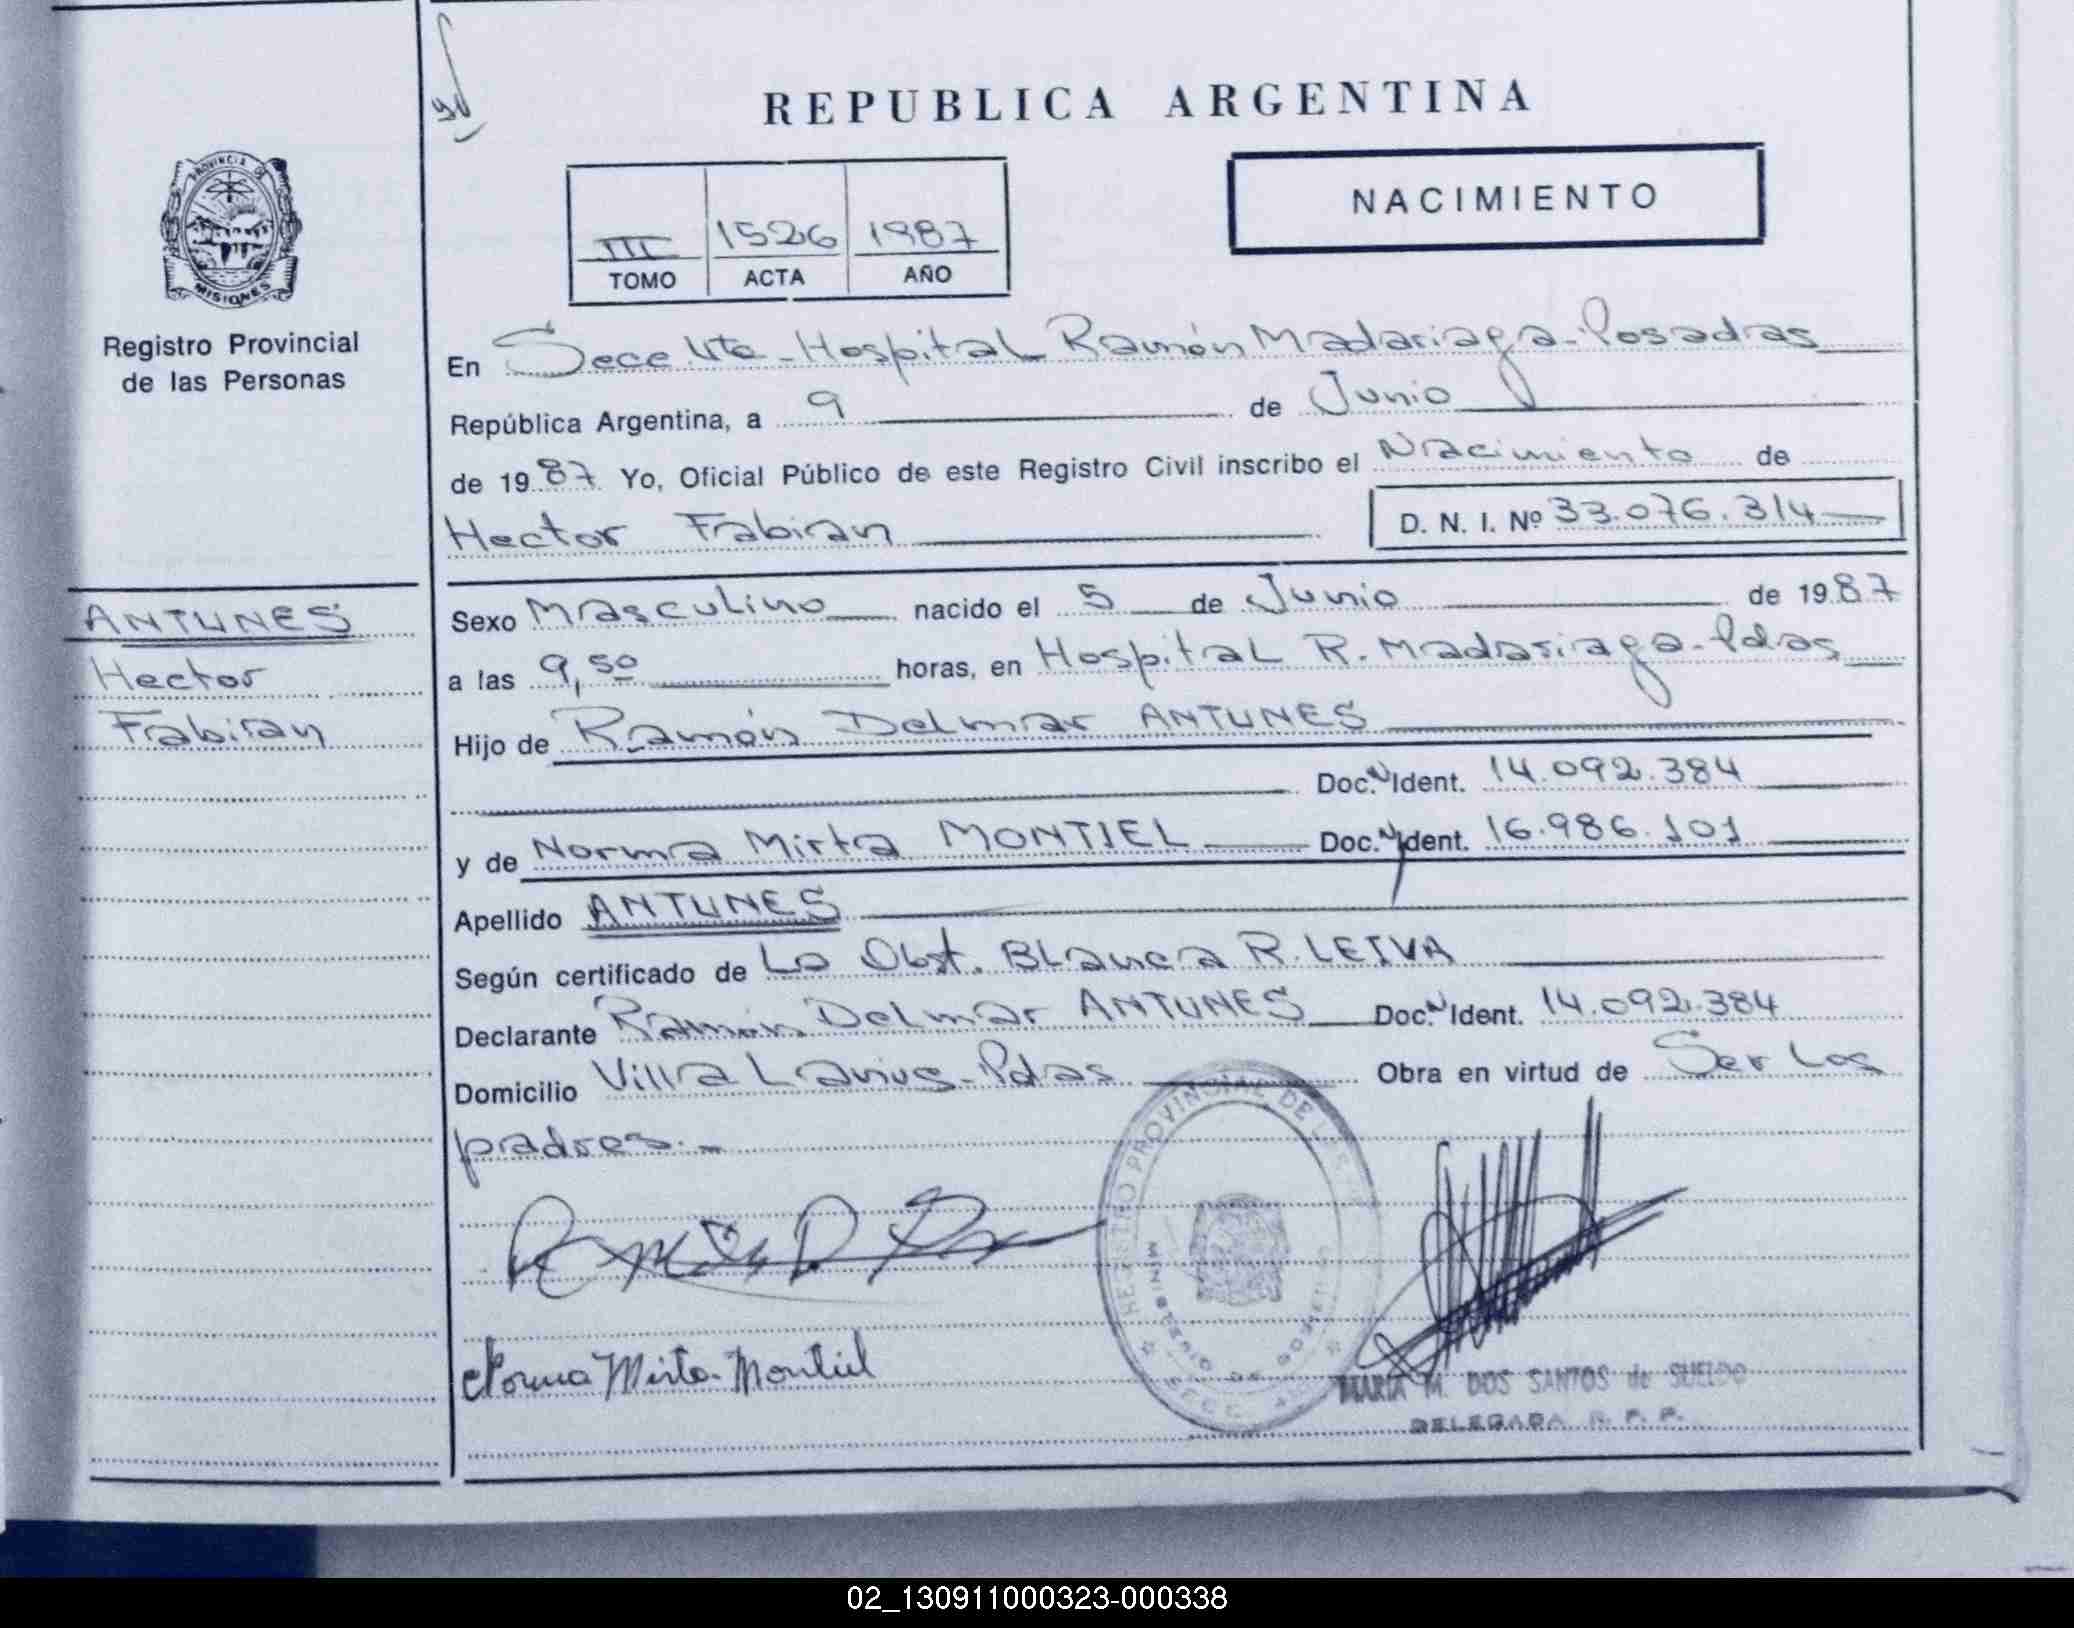 REPUBLICA ARGENTINA
NACIMIENTO
III 1526 1987
TOMO ACTA AÑO
PROVINCIA DE
MISIONES
Registro Provincial
de las Personas
En Secc Hospital Ramón Madariaga-Posadas
República Argentina, a 9 de Junio
de 1987 Yo, Oficial Público de este Registro Civil inscribo el Nacimiento de
Hector Fabian D. N. I. Nº 33.076.314
ANTUNES
Hector
Fabian
Sexo Masculino nacido el 5 de Junio de 1987
a las 9,50 horas, en Hospital R. Madariaga-Pdas
Hijo de Ramón Delmar ANTUNES
Doc. N Ident. 14.092.384
y de Norma Mirta MONTIEL Doc. N Ident. 16.986.101
Apellido ANTUNES
Según certificado de La Obst. Blanca R. LEIVA
Declarante Ramón Delmar ANTUNES Doc. N Ident. 14.092.384
Domicilio Villa Lanus-Pdas Obra en virtud de Ser Los
padres.-
REGISTRO PROVINCIAL DE
MINISTERIO DE GOBIERNO
Norma Mirta Montiel
MARIA M. DOS SANTOS de SUELDO
DELEGADA R. P. P.
02_130911000323-000338